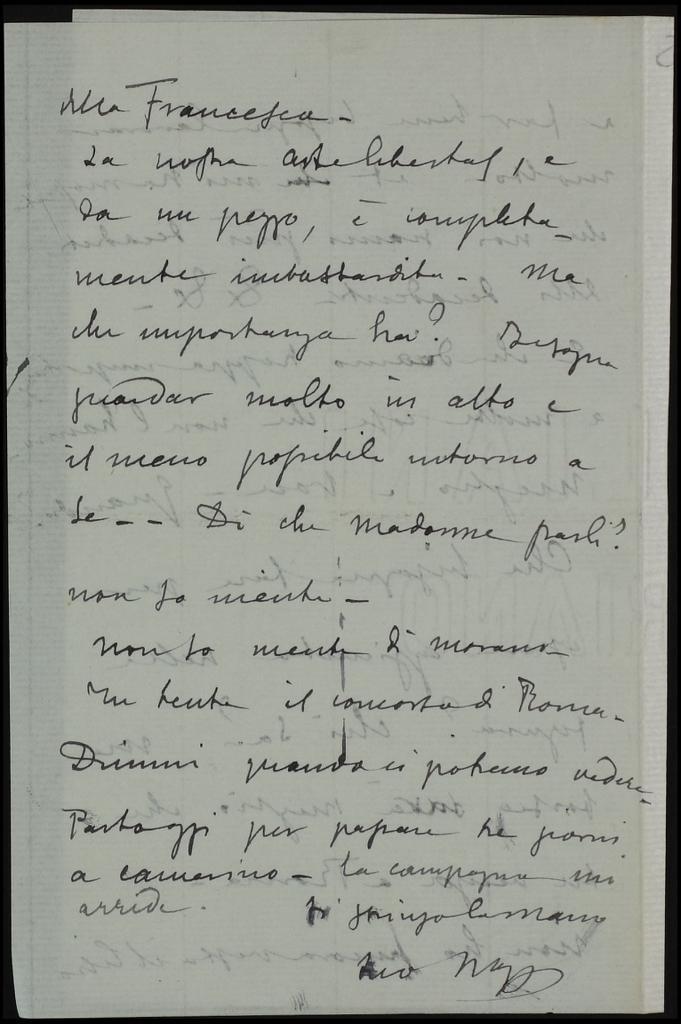 Alla Francesca -
La nostra Arte libertas, e
da un pezzo, è completa-
mente imbastardita - Ma
che importanza ha? Bisogna
guardar molto in alto e
il meno possibile intorno a
se - - Di che madonne parli?
non so niente -
non so niente di morano
Mi tenta il concorso di Roma -
Dimmi quando ci potremo vedere -
Parto oggi per passare tre giorni
a camerino - la campagna mi
arride. Ti stringo la mano
tuo